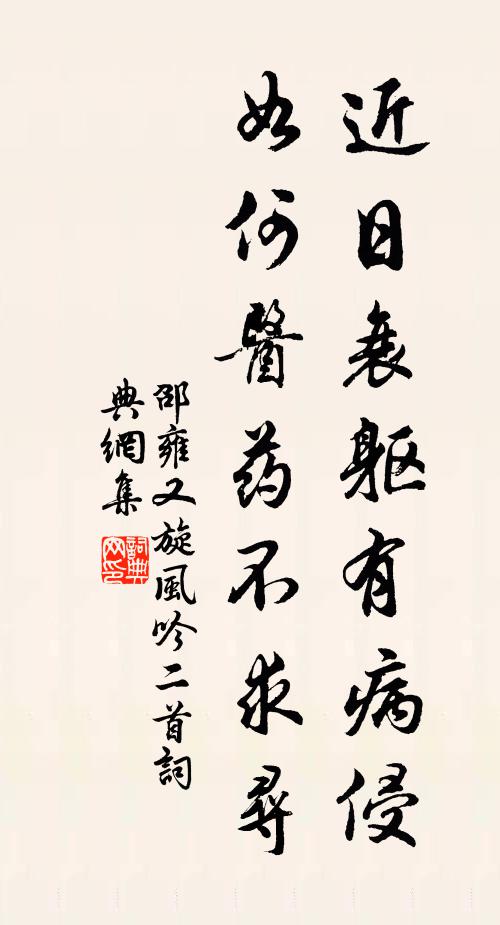 近日衰軀有病侵
如何醫药不求尋
邵雍又旋風吟二首詞
典網集
詞典网印